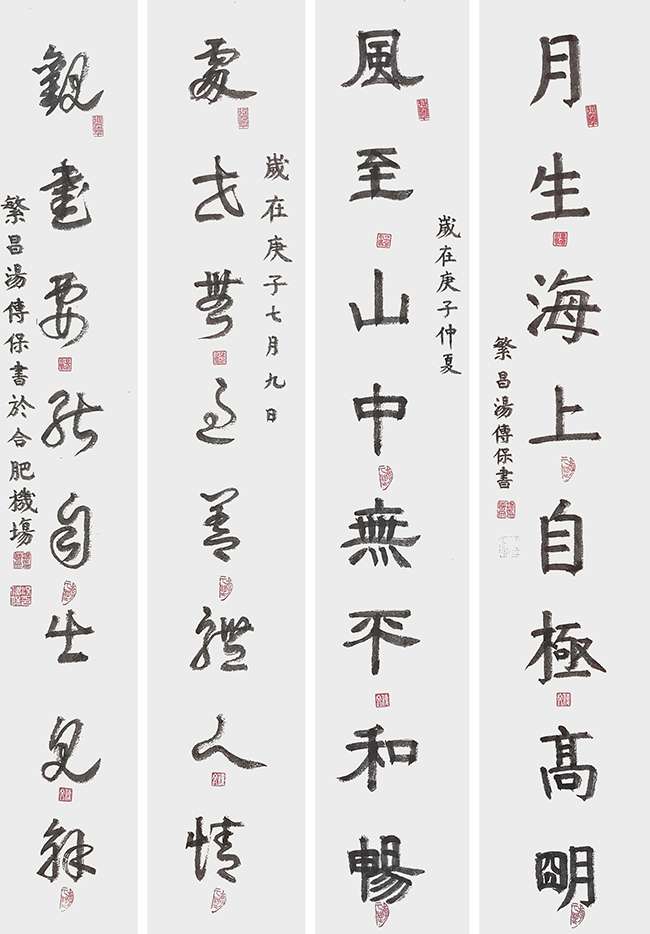 月生海上自極高明
繁昌湯傳保書
歲在庚子仲夏
風至山中無平和暢
歲在庚子七月九日
處世無過善體人情
觀書要能自出見解
繁昌湯傳保書於合肥機塲